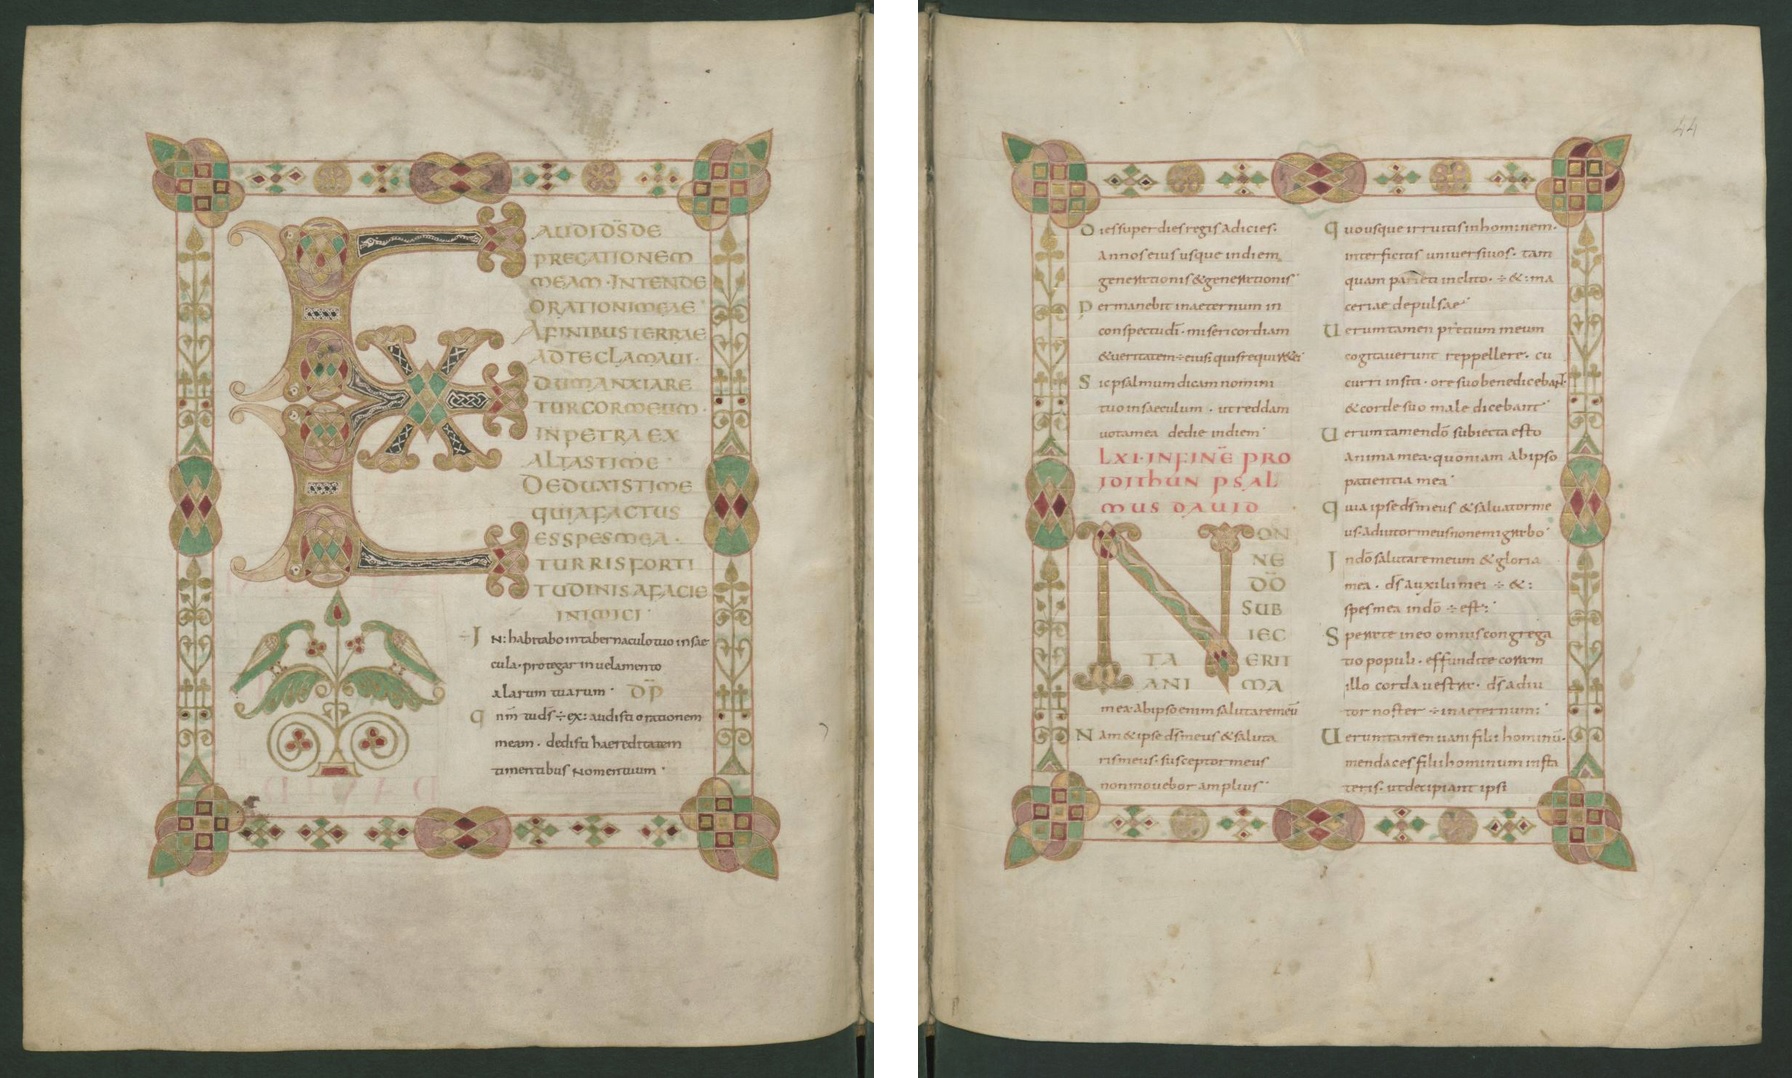 EXAUDI DS̄ DE
PRECATIONEM
MEAM · INTENDE
ORATIONI MEAE
A FINIBUS TERRAE
AD TE CLAMAUI ·
DUM ANXIARE
TUR COR MEUM ·
IN PETRA EX
ALTASTI ME ·
DEDUXISTI ME
QUIA FACTUS
ES SPES MEA ·
TURRIS FORTI
TUDINIS A FACIE
INIMICI ·
÷ IN: habitabo in tabernaculo tuo in sae
cula · protegar in uelamento
alarum tuarum · DP̄
qnm̄ tu ds̄ ÷ ex: audisti orationem
meam · dedisti haereditatem
timentibus nomen tuum ·
44
Dies super dies regis adicies ·
annos eius usque in diem
generationis & generationis ·
Permanebit in aeternum in
conspectu dī · misericordiam
& ueritatem ÷ eius: quis requir&
Sic psalmum dicam nomini
tuo in saeculum · ut reddam
uota mea de die in diem ·
LXI · IN FINĒ PRO
IDITHUN PSAL
MUS DAUID
NON
NE
DŌ
SUB
IEC
TA ERIT
ANI MA
mea · ab ipso enim salutare meū
Nam & ipse ds̄ meus & saluta
ris meus · susceptor meus
non mouebor amplius ·
Quousque irruitis in hominem ·
interficitis uniuersi uos · tam
quam parieti inclito · ÷ &: ma
ceriae depulsae ·
Uerumtamen pretium meum
cogitauerunt reppellere · cu
curri in siti · ore suo benedicebant
& corde suo maledicebant ·
Uerumtamen dō subiecta esto
anima mea · quoniam ab ipso
patientia mea ·
Quia ipse ds̄ meus & saluator me
us · adiutor meus non emigrabo ·
In dō salutare meum & gloria
mea · ds̄ auxilii mei ÷ &:
spes mea in dō ÷ est: ·
Sperate in eo omnis congrega
tio populi · effundite coram
illo corda uestra · ds̄ adiu
tor noster ÷ in aeternum: ·
Uerumtamen uani filii hominū ·
mendaces filii hominum in sta
teris · ut decipiant ipsi